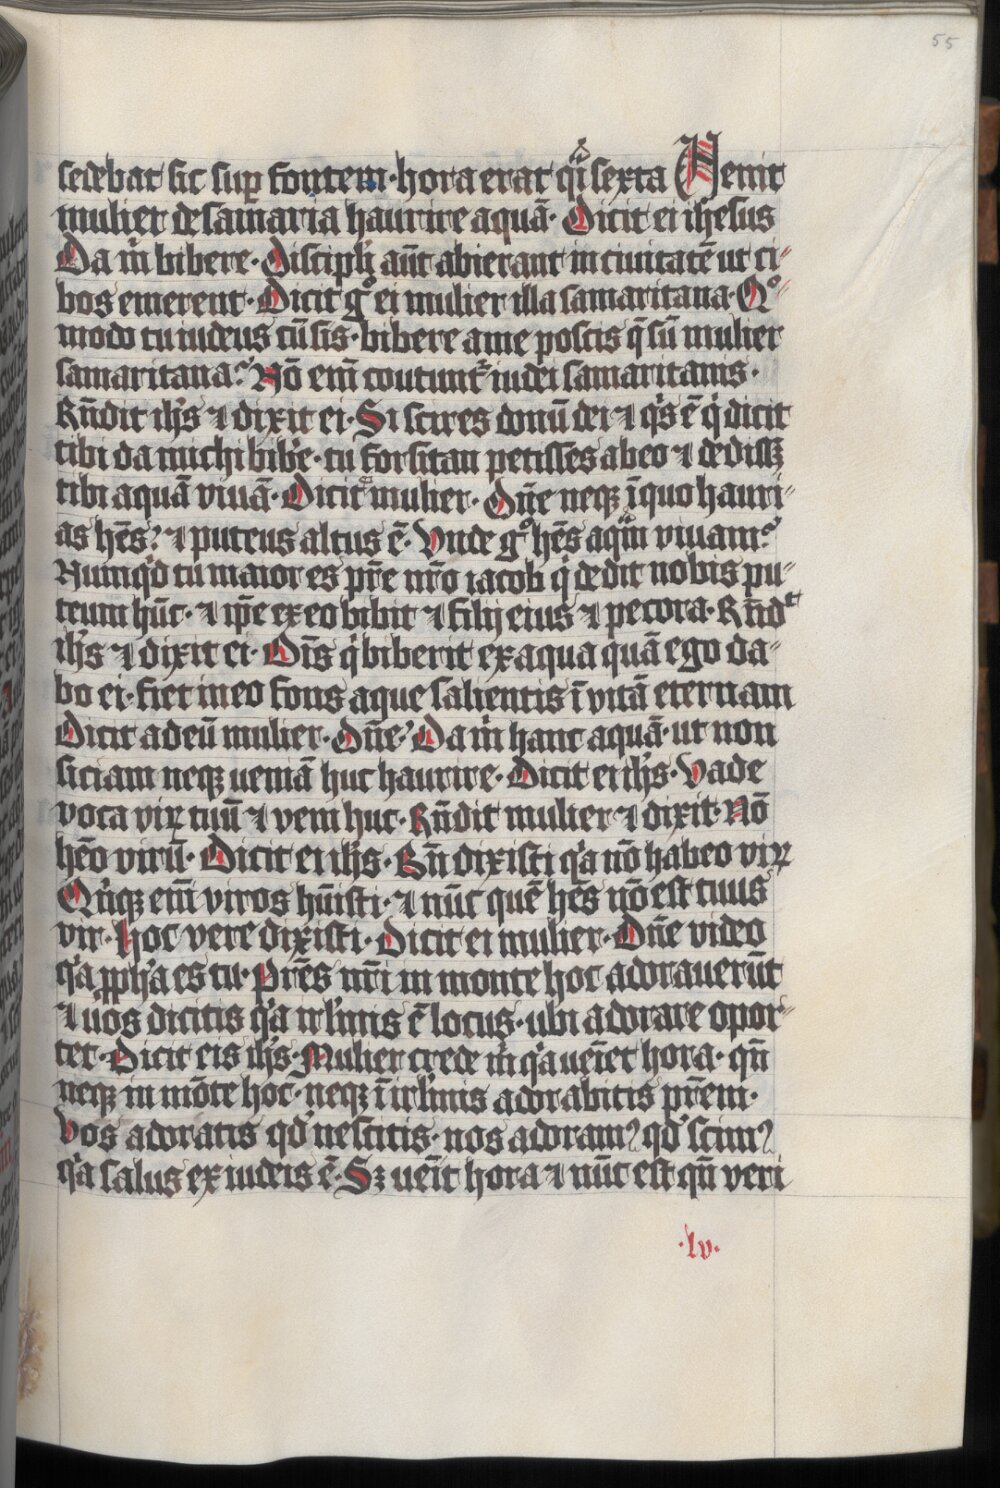 55
sedebat sic sup fontem · hora erat qͣi sexta Venit
mulier de samaria haurire aquā · Dicit ei ihesus
Da m̄ bibere · Discipli aūt abierant in ciuitatē ut ci-
bos emerent · Dicit gͦ ei mulier illa samaritana · Qͦ-
modo tu iudeus cū sis · bibere a me poscis q̄ sū mulier
samaritana? Nō em̄ coutunt᷑ iudei samaritanis ·
Rn̄dit ih̄s ⁊ dixit ei · Si scires donū dei ⁊ qͥs ē qͥ dicit
tibi da michi bib̄e · tu forsitan petisses ab eo ⁊ dedissꝫ
tibi aquā viuā · Dicit mulier · Dn̄e neqꝫ ī quo hauri-
as hēs? ⁊ puteus altus ē · Vnde gͦ hēs aqͣm viuam?
Numqͥd tu maior es pr̄e nr̄o iacob qͥ dedit nobis pu-
teum hūc · ⁊ ip̄e ex eo bibit ⁊ filij eius ⁊ pecora · Rn̄dᵗ
ih̄s ⁊ dixit ei · Om̄s qͥ biberit ex aqua quā ego da-
bo ei · fiet in eo fons aque salientis ī vitā eternam
Dicit ad eū mulier · Dn̄e · Da m̄ hanc aquā · ut non
siciam neqꝫ ueniā huc haurire · Dicit ei ih̄s · Vade
voca virꝝ tuū ⁊ veni huc · Rn̄dit mulier ⁊ dixit · Nō
hēo virū · Dicit ei ih̄s · Bn̄ dixisti qͥa nō habeo virꝝ
Qͥnqꝫ em̄ viros hūisti · ⁊ nūc quē hēs nō est tuus
vir · hoc vere dixisti · Dicit ei mulier · Dn̄e video
qͥa ꝓph̄a es tu · Pr̄es nr̄i in monte hoc adorauerūt
⁊ uos dicitis qͥa irl̄mis ē locus · ubi adorare opor-
tet · Dicit eis ih̄s · Mulier crede m̄ qͥa ueīet hora · qn̄
neqꝫ in mōte hoc · neqꝫ ī irl̄mis adorabitis pr̄em ·
Vos adoratis qd̄ nescitis · nos adoramꝰ qd̄ scimꝰ
qͥa salus ex iudeis ē · Sꝫ ueīt hora ⁊ nūc est qn̄ veri
· lv ·